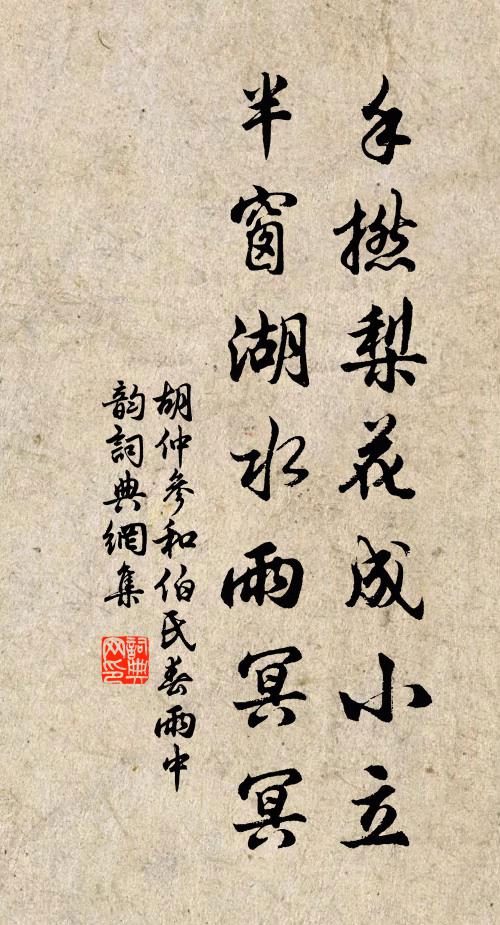 手撚梨花成小立
半窗湖水雨冥冥
胡仲參和伯氏春雨中
韵詞典網集
詞典
网印